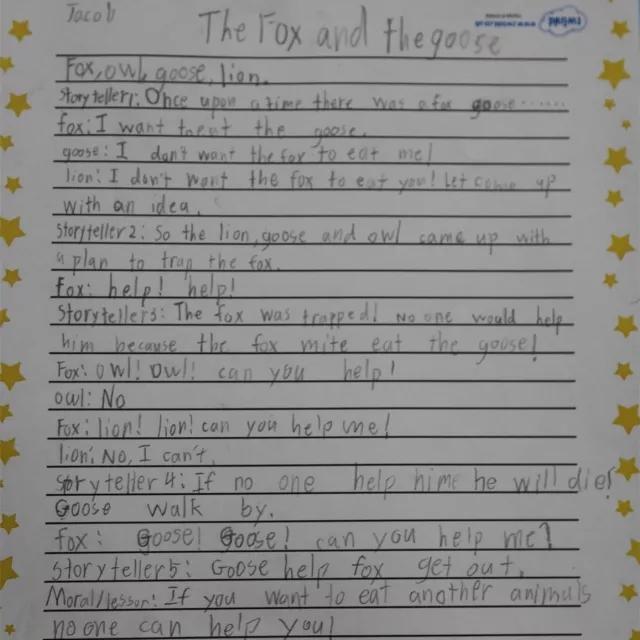 Jacob
The Fox and thegoose
Fox, owl, goose, lion.
Storyteller1: Once upon a time there was a fox goose......
fox: I want to eat the goose.
goose: I don't want the fox to eat me!
lion: I don't want the fox to eat you! Let come up
with an idea.
Storyteller2: So the lion, goose and owl came up with
a plan to trap the fox.
Fox: help! help!
Storyteller3: The fox was trapped! No one would help
him because the fox mite eat the goose!
Fox: Owl! Owl! can you help!
owl: No
Fox: lion! lion! can you help me!
lion: No, I can't.
Storyteller 4: If no one help hime he will die!
Goose walk by.
fox: Goose! Goose! can you help me?
Storyteller5: Goose help fox get out.
Moral/lesson: If you want to eat another animals
no one can help you!